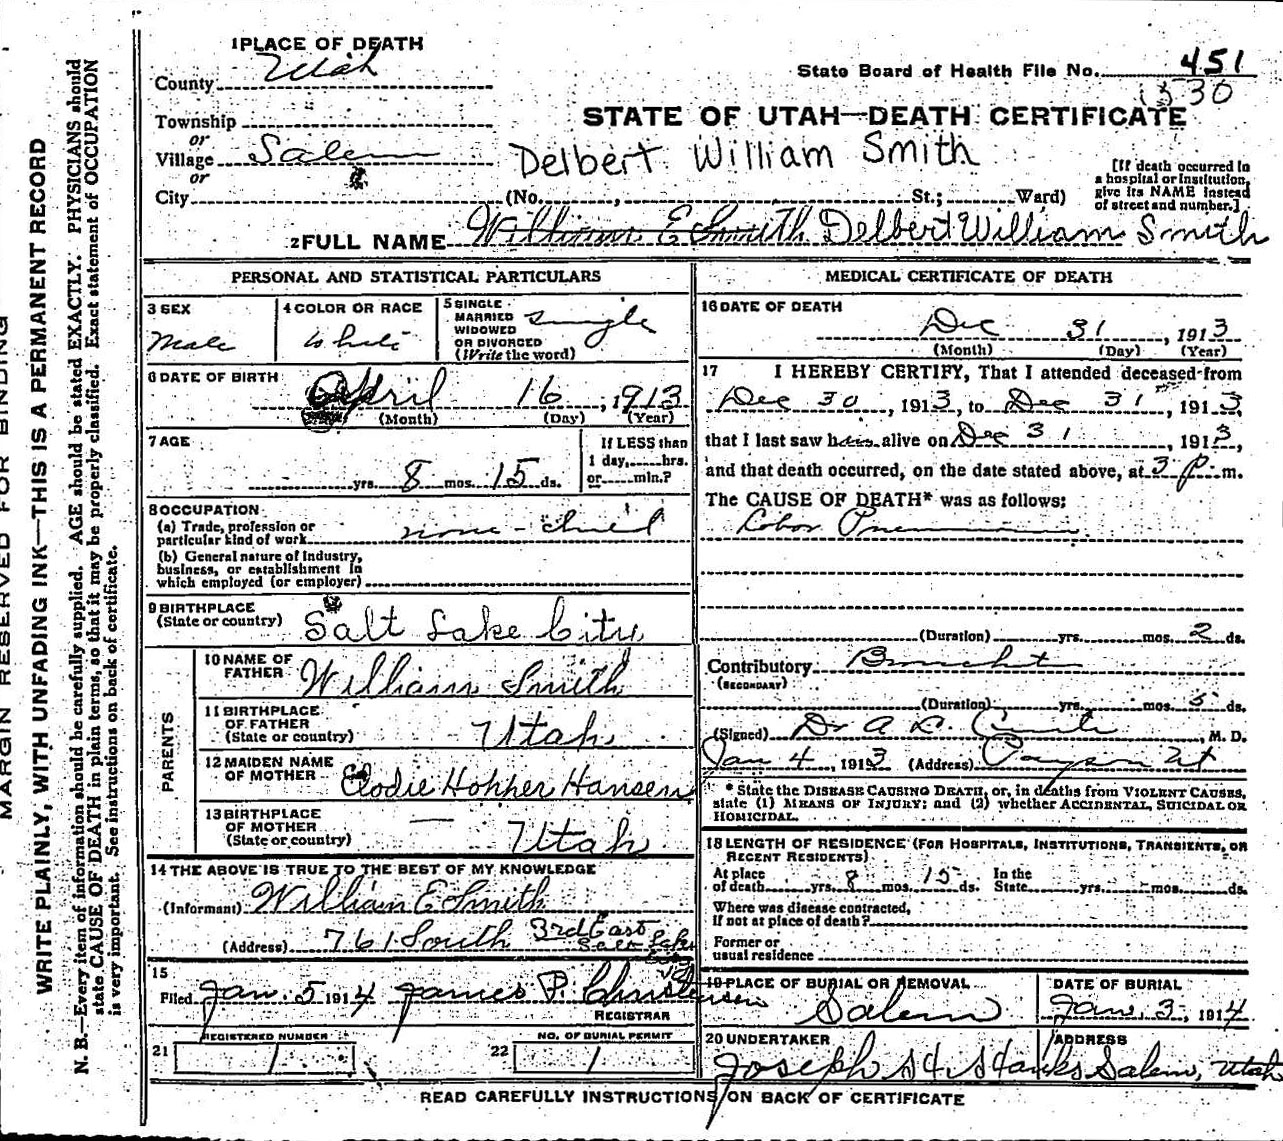 1 PLACE OF DEATH
County Utah
State Board of Health File No. 451
1530
Township
or
Village Salem
or
City
STATE OF UTAH—DEATH CERTIFICATE
Delbert William Smith
[If death occurred in
a hospital or institution,
give its NAME instead
of street and number.]
(No. , St.; Ward)
2 FULL NAME William E Smith Delbert William Smith
PERSONAL AND STATISTICAL PARTICULARS
3 SEX
Male
4 COLOR OR RACE
White
5 SINGLE
MARRIED
WIDOWED
OR DIVORCED
(Write the word)
single
6 DATE OF BIRTH
April 16, 1913
(Month) (Day) (Year)
7 AGE
yrs. 8 mos. 15 ds.
If LESS than
1 day, hrs.
or min.?
8 OCCUPATION
(a) Trade, profession or
particular kind of work none - child
(b) General nature of industry,
business, or establishment in
which employed (or employer)
9 BIRTHPLACE
(State or country) Salt Lake City
PARENTS
10 NAME OF
FATHER William Smith
11 BIRTHPLACE
OF FATHER
(State or country) Utah
12 MAIDEN NAME
OF MOTHER Elodie Hopper Hansen
13 BIRTHPLACE
OF MOTHER
(State or country) — Utah
14 THE ABOVE IS TRUE TO THE BEST OF MY KNOWLEDGE
(Informant) William E Smith
(Address) 761 South 3rd East
Salt Lake
City
15
Filed Jan. 5 1914 James P. Christensen
REGISTRAR
REGISTERED NUMBER
21 1
NO. OF BURIAL PERMIT
22 1
MEDICAL CERTIFICATE OF DEATH
16 DATE OF DEATH
Dec 31, 1913
(Month) (Day) (Year)
17 I HEREBY CERTIFY, That I attended deceased from
Dec 30, 1913, to Dec 31, 1913,
that I last saw him alive on Dec 31, 1913,
and that death occurred, on the date stated above, at 3 p. m.
The CAUSE OF DEATH* was as follows:
Lobar Pneumonia
(Duration) yrs. mos. 2 ds.
Contributory
(SECONDARY)
(Duration) yrs. mos. 5 ds.
(Signed) Dr A L Curtis, M. D.
Jan 4, 1913 (Address) Payson Ut
* State the DISEASE CAUSING DEATH, or, in deaths from VIOLENT CAUSES,
state (1) MEANS OF INJURY; and (2) whether ACCIDENTAL, SUICIDAL OR
HOMICIDAL.
18 LENGTH OF RESIDENCE (FOR HOSPITALS, INSTITUTIONS, TRANSIENTS, OR
RECENT RESIDENTS)
At place In the
of death yrs. 8 mos. 15 ds. State yrs. mos. ds.
Where was disease contracted,
if not at place of death?
Former or
usual residence
19 PLACE OF BURIAL OR REMOVAL
Salem
DATE OF BURIAL
Jan. 3, 1914
20 UNDERTAKER
Joseph H. Hanks
ADDRESS
Salem, Utah
READ CAREFULLY INSTRUCTIONS ON BACK OF CERTIFICATE
MARGIN RESERVED FOR BINDING
WRITE PLAINLY, WITH UNFADING INK—THIS IS A PERMANENT RECORD
N. B.—Every item of information should be carefully supplied. AGE should be stated EXACTLY. PHYSICIANS should
state CAUSE OF DEATH in plain terms, so that it may be properly classified. Exact statement of OCCUPATION
is very important. See instructions on back of certificate.